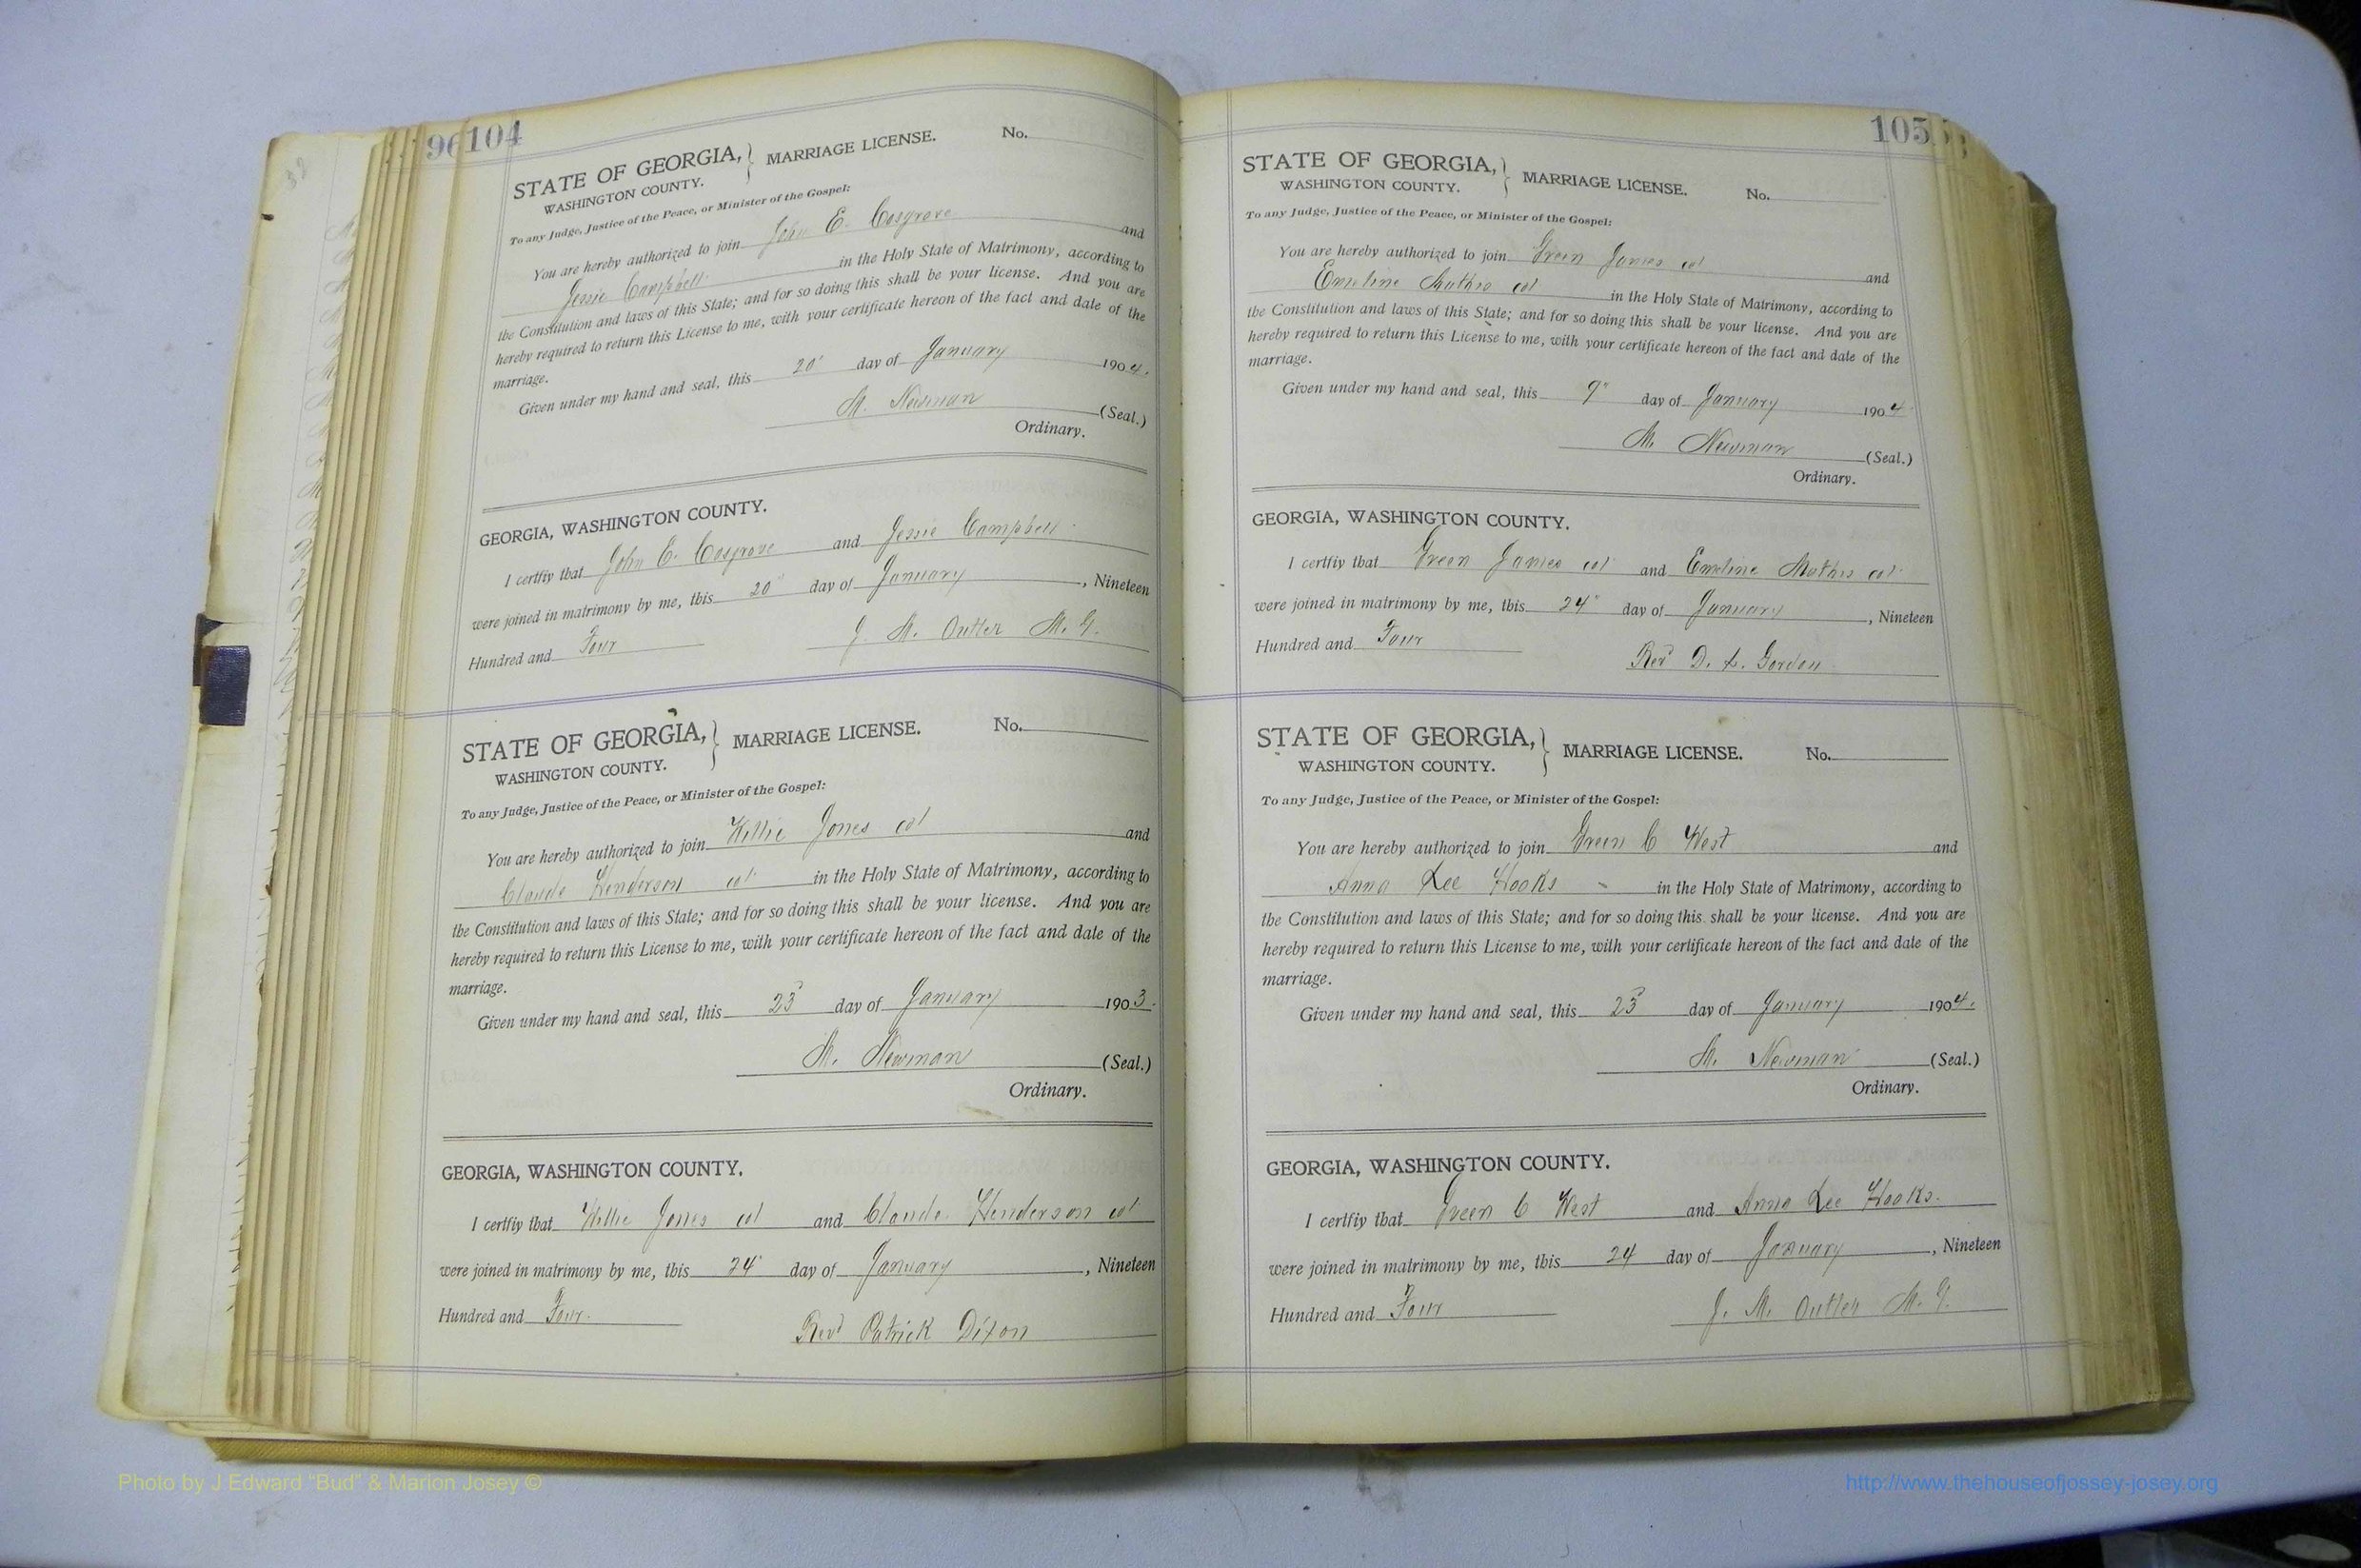 96
104
STATE OF GEORGIA, MARRIAGE LICENSE. No.
WASHINGTON COUNTY.
To any Judge, Justice of the Peace, or Minister of the Gospel:
You are hereby authorized to join John E. Cosgrove and
Jessie Campbell in the Holy State of Matrimony, according to
the Constitution and laws of this State; and for so doing this shall be your license. And you are
hereby required to return this License to me, with your certificate hereon of the fact and date of the
marriage.
Given under my hand and seal, this 20" day of January 1904.
M. Newman (Seal.)
Ordinary.
GEORGIA, WASHINGTON COUNTY.
I certfiy that John E. Cosgrove and Jessie Campbell
were joined in matrimony by me, this 20" day of January, Nineteen
Hundred and Four
J. M. Outler M. G.
STATE OF GEORGIA, MARRIAGE LICENSE. No.
WASHINGTON COUNTY.
To any Judge, Justice of the Peace, or Minister of the Gospel:
You are hereby authorized to join Willie Jones col and
Claude Henderson col in the Holy State of Matrimony, according to
the Constitution and laws of this State; and for so doing this shall be your license. And you are
hereby required to return this License to me, with your certificate hereon of the fact and date of the
marriage.
Given under my hand and seal, this 23 day of January 1903.
M. Newman (Seal.)
Ordinary.
GEORGIA, WASHINGTON COUNTY.
I certfiy that Willie Jones col and Claude Henderson col
were joined in matrimony by me, this 24" day of January, Nineteen
Hundred and Four.
Revd Patrick Dixon
105
STATE OF GEORGIA, MARRIAGE LICENSE. No.
WASHINGTON COUNTY.
To any Judge, Justice of the Peace, or Minister of the Gospel:
You are hereby authorized to join Green James col and
Emeline Mathis col in the Holy State of Matrimony, according to
the Constitution and laws of this State; and for so doing this shall be your license. And you are
hereby required to return this License to me, with your certificate hereon of the fact and date of the
marriage.
Given under my hand and seal, this 9" day of January 1904
M. Newman (Seal.)
Ordinary.
GEORGIA, WASHINGTON COUNTY.
I certfiy that Green James col and Emeline Mathis col
were joined in matrimony by me, this 24" day of January, Nineteen
Hundred and Four
Revd D. L. Gordon
STATE OF GEORGIA, MARRIAGE LICENSE. No.
WASHINGTON COUNTY.
To any Judge, Justice of the Peace, or Minister of the Gospel:
You are hereby authorized to join Green C West and
Anna Lee Hooks in the Holy State of Matrimony, according to
the Constitution and laws of this State; and for so doing this shall be your license. And you are
hereby required to return this License to me, with your certificate hereon of the fact and date of the
marriage.
Given under my hand and seal, this 23 day of January 1904.
M. Newman (Seal.)
Ordinary.
GEORGIA, WASHINGTON COUNTY.
I certfiy that Green C West and Anna Lee Hooks.
were joined in matrimony by me, this 24 day of January, Nineteen
Hundred and Four
J. M. Outler M. G.
Photo by J Edward "Bud" & Marion Josey ©
http://www.thehouseofjossey-josey.org